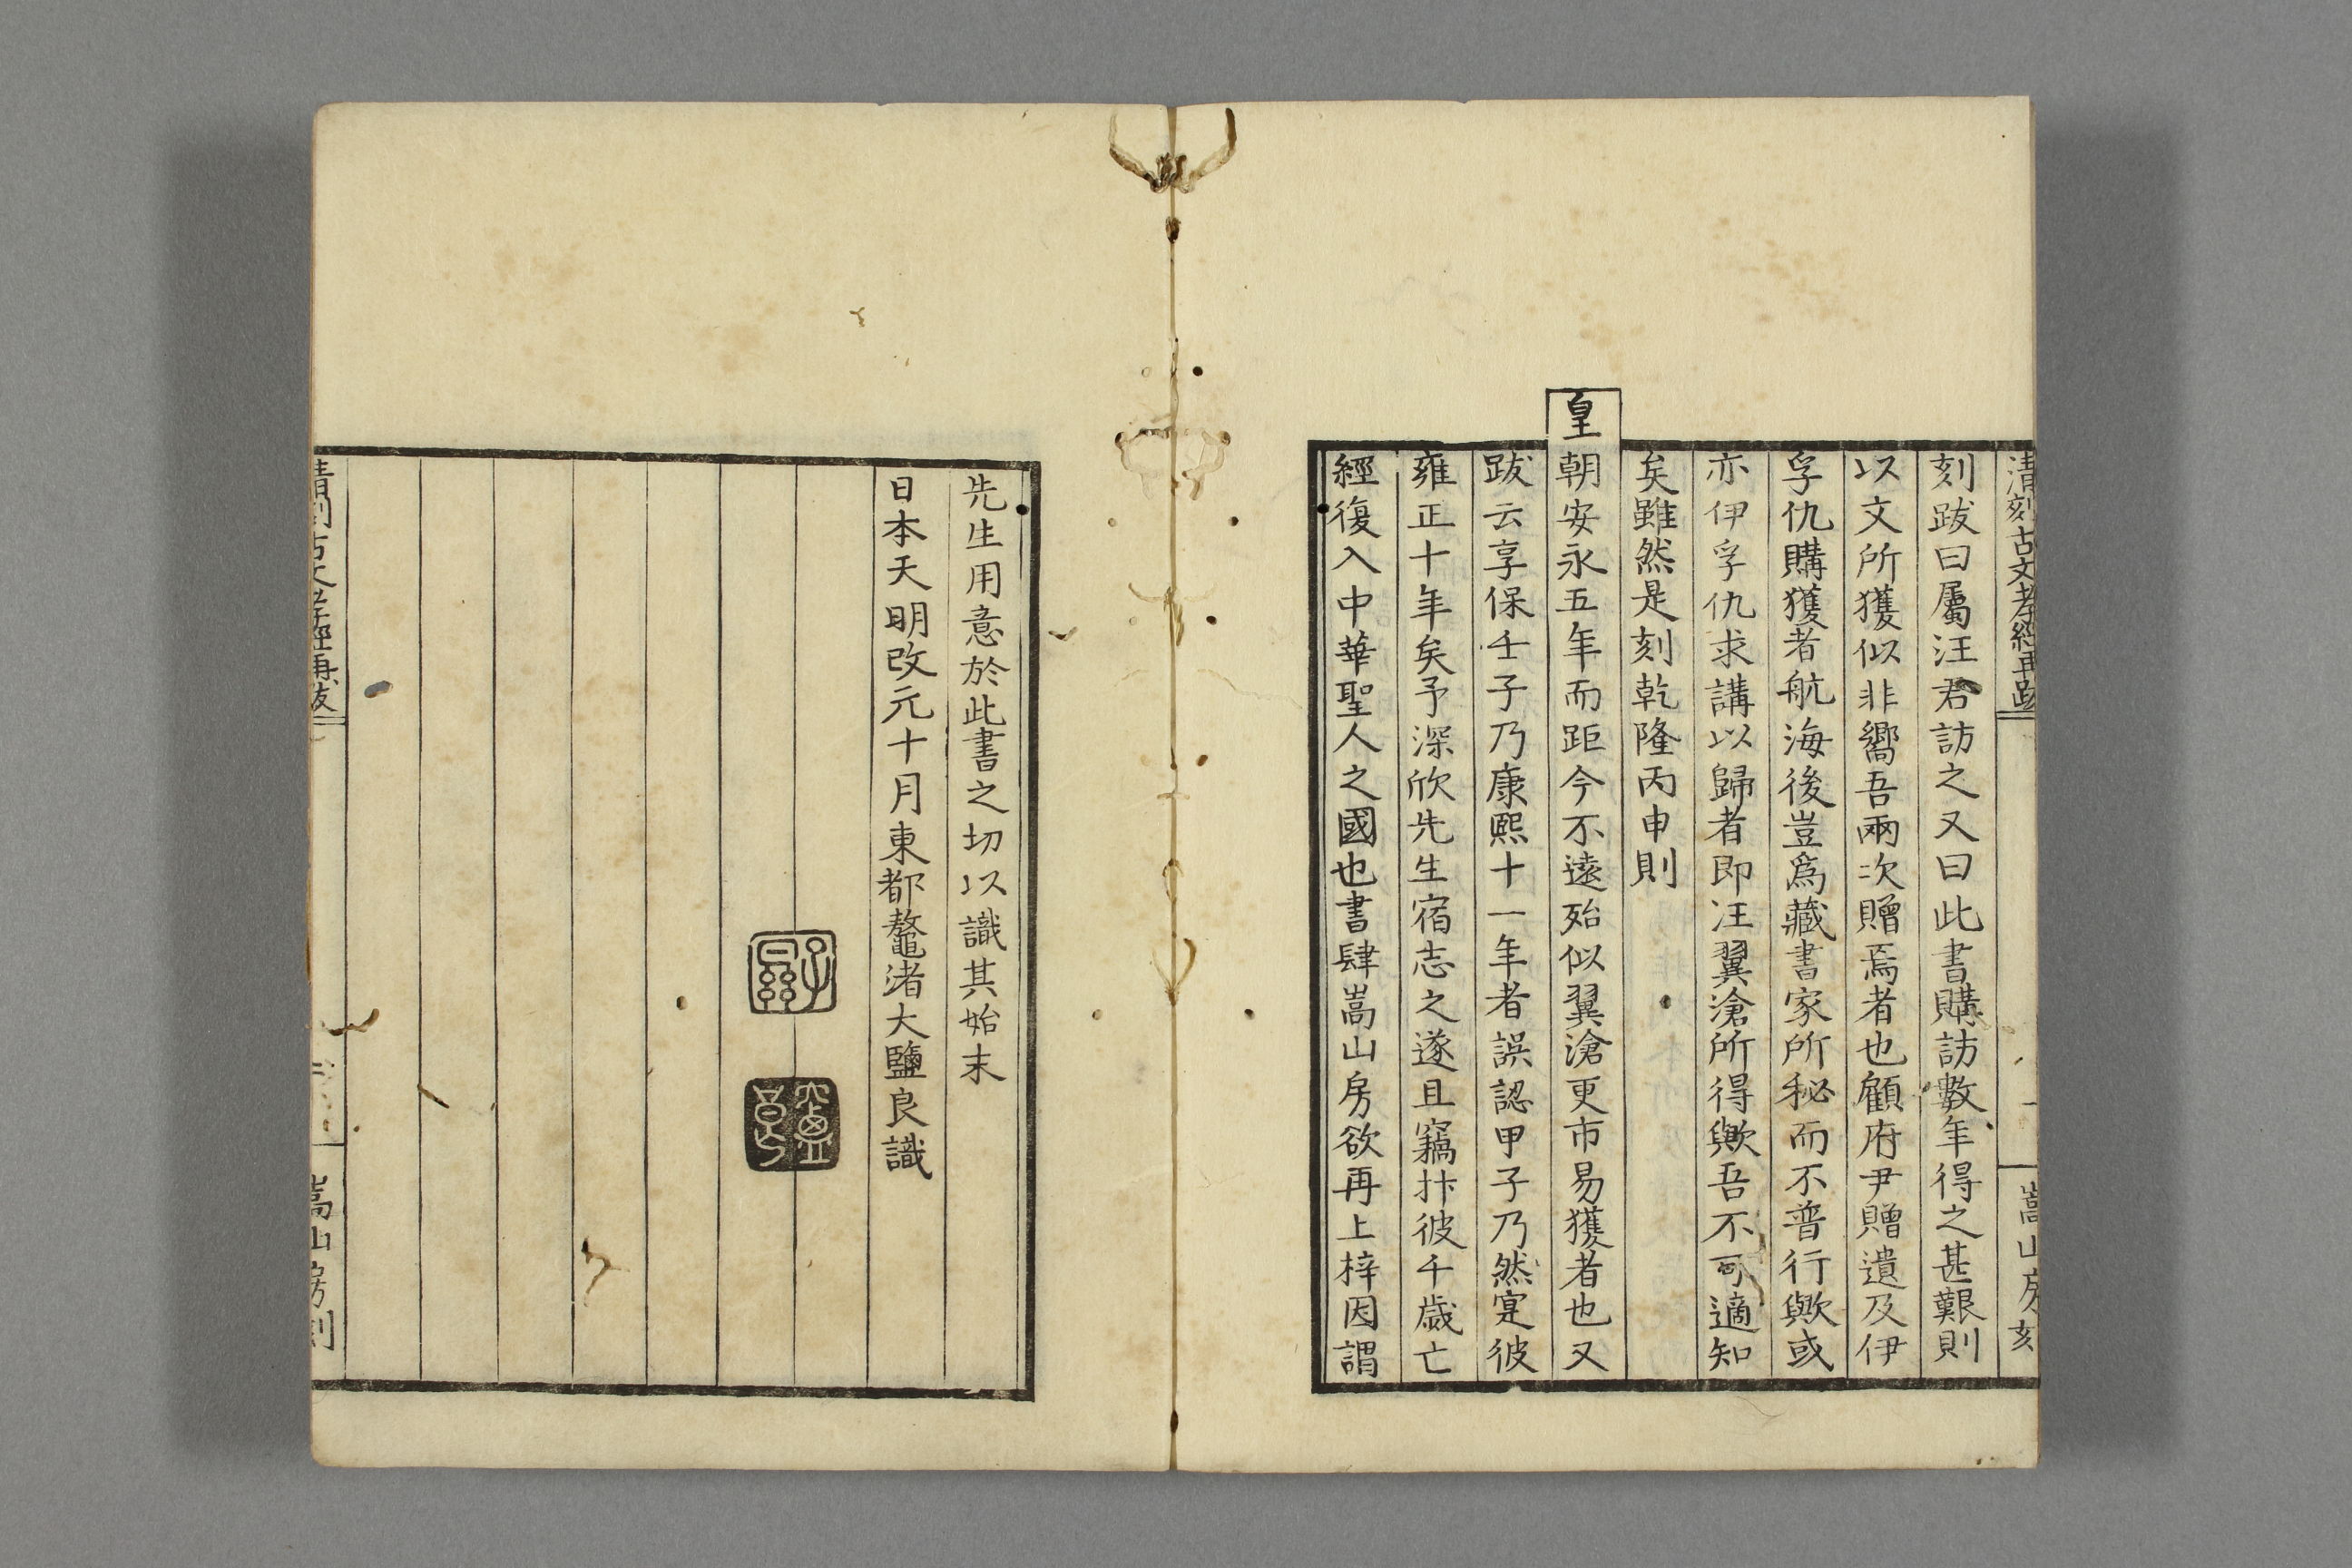 清刻古文孝經再跋
嵩山房刻
刻跋曰屬汪君訪之又曰此書購訪數年得之甚艱則
以文所獲似非嚮吾兩次贈焉者也顧府尹贈遺及伊
孚仇購獲者航海後豈爲藏書家所秘而不普行歟或
亦伊孚仇求講以歸者即汪翼滄所得歟吾不可適知
矣雖然是刻乾隆丙申則
皇朝安永五年而距今不遠殆似翼滄更市易獲者也又
跋云享保壬子乃康熙十一年者誤認甲子乃然寔彼
雍正十年矣予深欣先生宿志之遂且竊抃彼千歲亡
經復入中華聖人之國也書肆嵩山房欲再上梓因謂
先生用意於此書之切以識其始末
日本天明改元十月東都鼇渚大鹽良識
清刻古文孝經再跋
嵩山房刻